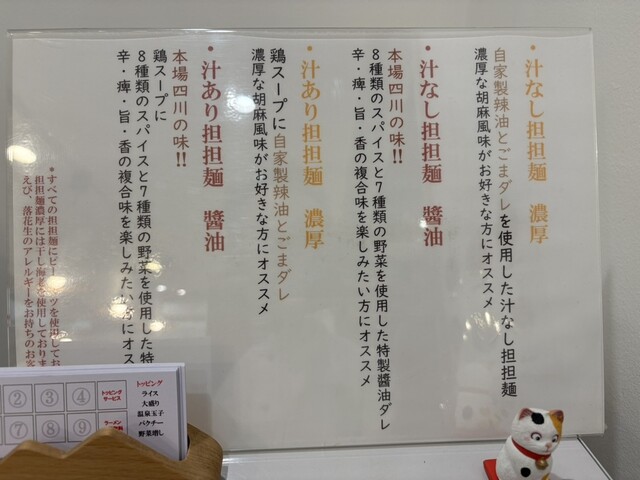 ・汁なし担担麺 濃厚
自家製辣油とごまダレを使用した汁なし担担麺
濃厚な胡麻風味がお好きな方にオススメ
・汁なし担担麺 醤油
本場四川の味!!
8種類のスパイスと7種類の野菜を使用した特製醤油ダレ
辛・痺・旨・香の複合味を楽しみたい方にオススメ
・汁あり担担麺 濃厚
鶏スープに自家製辣油とごまダレ
濃厚な胡麻風味がお好きな方にオススメ
・汁あり担担麺 醤油
本場四川の味!!
鶏スープに
8種類のスパイスと7種類の野菜を使用した特
辛・痺・旨・香の複合味を楽しみたい方にオス
*すべての担担麺にピーナッツを使用してお
担担麺濃厚には干し海老を使用しておりま
えび、落花生のアレルギーをお持ちのお客
② ③ ④ トッピングサービス
⑦ ⑧ ⑨ ラーメン
トッピング
ライス
大盛り
温泉玉子
パクチー
野菜増し